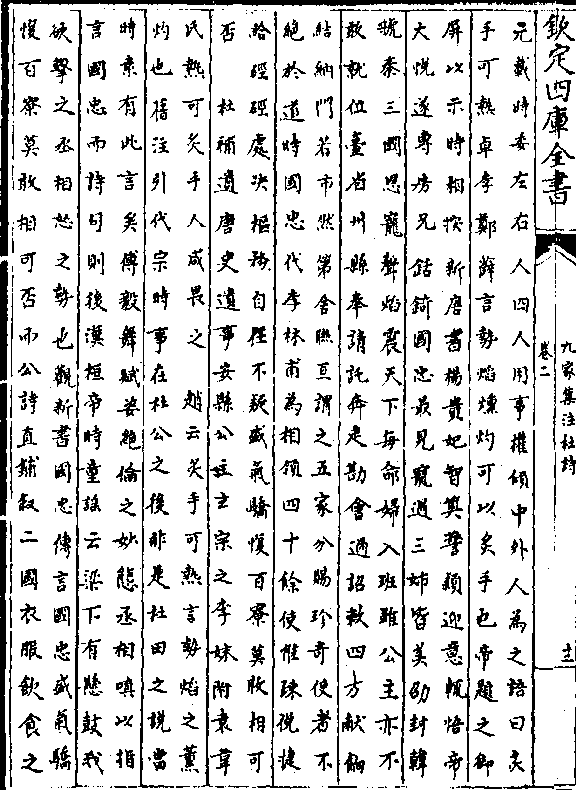 欽定四庫全書
九家集注杜詩
卷二
十二
元載時委左右人四人用事權傾中外人為之語曰炙
手可熱卓李鄭薛言勢焰燻灼可以炙手也帝題之御
屏以示時相 按新唐書楊貴妃智算警穎迎意輒悟帝
大悅遂專房兄銛錡國忠最見寵遇三姊皆美劭封韓
虢秦三國恩寵聲焰震天下每命婦入班雖公主亦不
敢就位臺省州縣奉請託奔走勘會過詔敕四方獻餉
結納門若市然第舍聯亙謂之五家分賜珍奇使者不
絕於道時國忠代李林甫為相領四十餘使性疎侻捷
給硜硜處決樞務自任不疑盛氣驕愎百寮莫敢相可
否 杜補遺唐史遺事安縣公主玄宗之季妹附袁韋
氏熱可炙手人咸畏之 趙云炙手可熱言勢焰之薰
灼也舊注引代宗時事在杜公之後非是杜田之說當
時素有此言矣傅毅舞賦姿絕倫之妙態丞相嗔以指
言國忠而詩句則後漢桓帝時童謠云梁下有懸鼓我
欲擊之丞相怒之勢也觀新書國忠傳言國忠盛氣驕
愎百寮莫敢相可否而公詩直鋪叙二國衣服飲食之